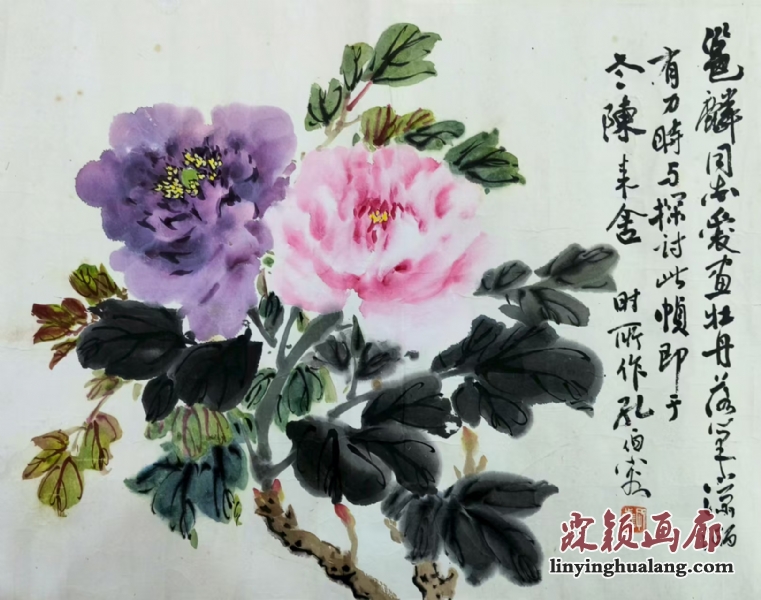 麟同志爱画牡丹落笔潇洒
有力时与探讨此帧即于
冬陈来舍
时所作孔伯容
霖颖画廊
linyinghualang.com